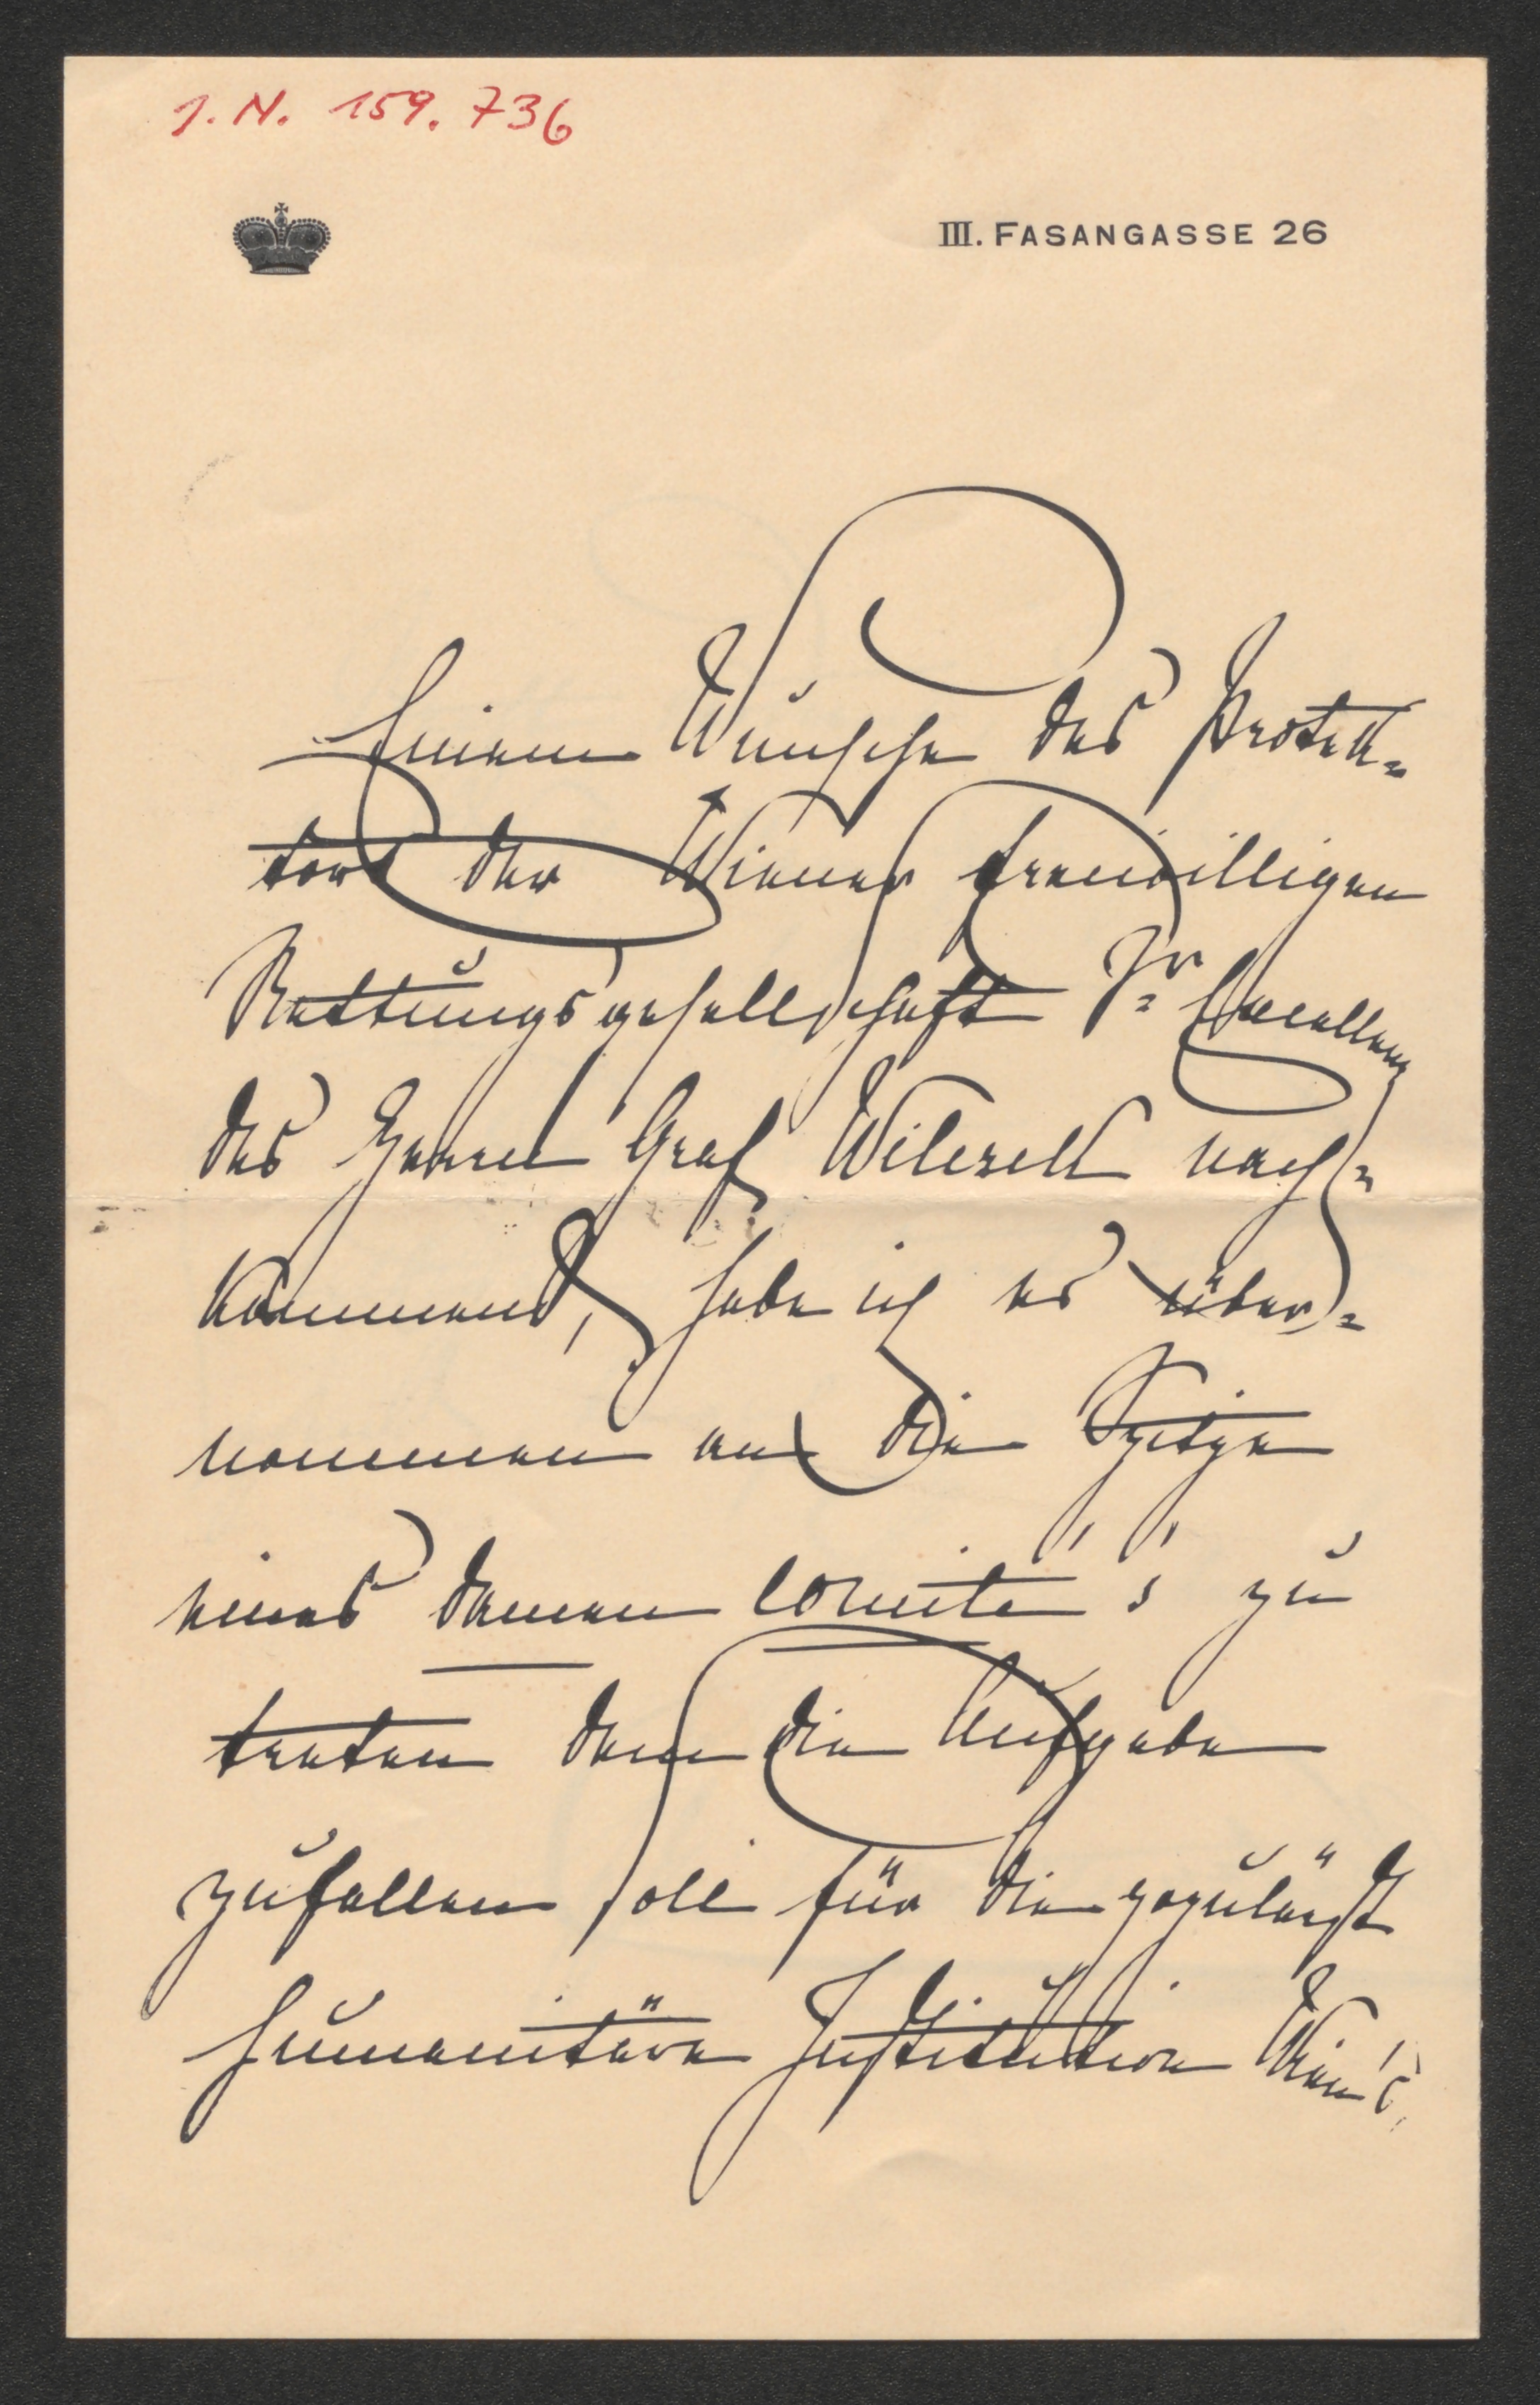 I. N. 159.736
III. FASANGASSE 26
Einem Wunsche des Protek=
tors der Wiener freiwilligen
Rettungsgesellschaft Sr Excellenz
des Herrn Graf Wilczek nach=
kommend, habe ich es über=
nommen an die Spitze
eines Damen Comité's zu
treten dem die Aufgabe
zufallen soll für die populärst
humanitäre Institution Wien's,